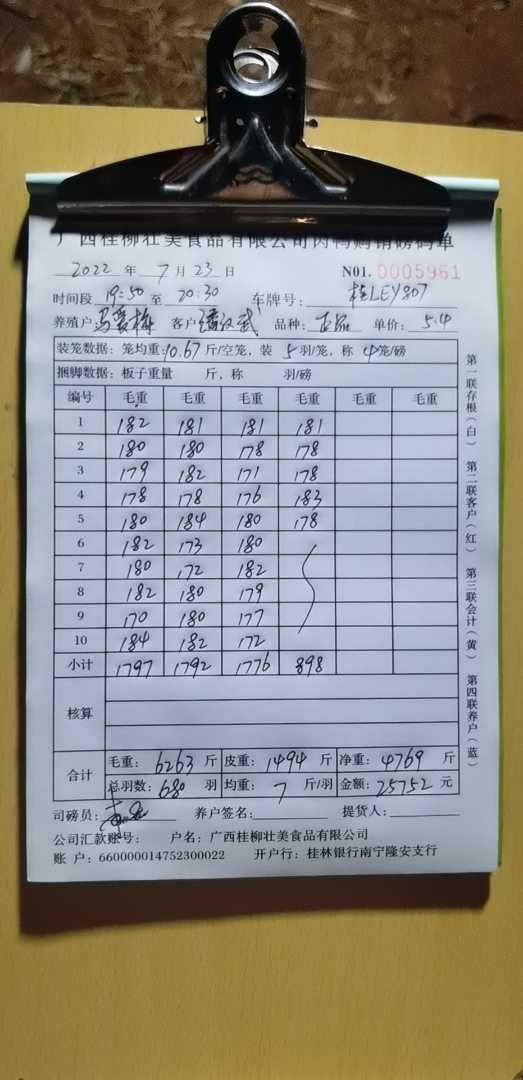 广西桂柳壮美食品有限公司肉鸭购销磅码单
2022 年 7 月 23 日 NO1. 0005961
时间段 19:50 至 20:30 车牌号: 桂LEY807
养殖户 客户 品种: 正品 单价: 5.4
装笼数据: 笼均重: 10.67 斤/空笼, 装 5 羽/笼, 称 4 笼/磅
捆脚数据: 板子重量 斤, 称 羽/磅
编号 毛重 毛重 毛重 毛重 毛重 毛重
1 182 181 181 181
2 180 180 178 178
3 179 182 171 178
4 178 178 176 183
5 180 184 180 178
6 182 173 180
7 180 172 182
8 182 180 179
9 170 180 177
10 184 182 172
小计 1797 1792 1776 898
核算
合计 毛重: 6263 斤 皮重: 1494 斤 净重: 4769 斤
总羽数: 680 羽 均重: 7 斤/羽 金额: 25752 元
司磅员: 养户签名: 提货人:
公司汇款账号: 户名: 广西桂柳壮美食品有限公司
账 户: 660000014752300022 开户行: 桂林银行南宁隆安支行
第一联存根(白) 第二联客户(红) 第三联会计(黄) 第四联养户(蓝)